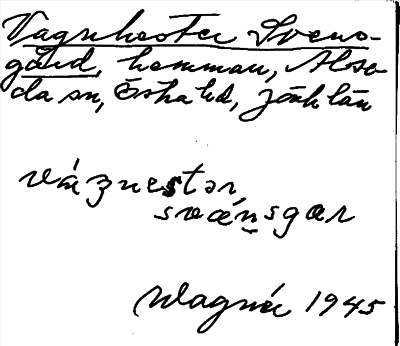 Vagnhester Svens-
gård, hemman, Alse-
da sn, Östra hd, Jönk län
vágnestər,
svǽnsgar
Wagnér 1945